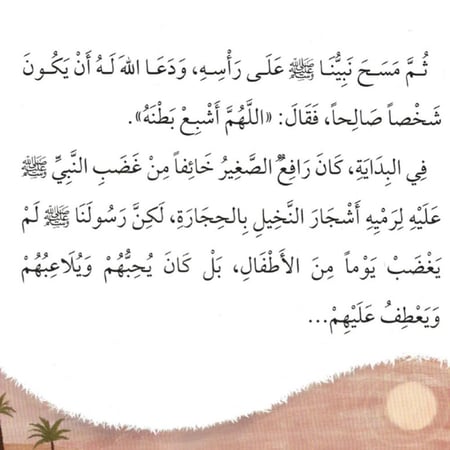 ثُمَّ مَسَحَ نَبِيُّنَا ﷺ عَلَى رَأْسِهِ، وَدَعَا اللهَ لَهُ أَنْ يَكُونَ
شَخْصاً صَالِحاً، فَقَالَ: «اللَّهُمَّ أَشْبِعْ بَطْنَهُ».
فِي البِدَايَةِ، كَانَ رَافِعٌ الصَّغِيرُ خَائِفاً مِنْ غَضَبِ النَّبِيِّ ﷺ
عَلَيْهِ لِرَمْيِهِ أَشْجَارَ النَّخِيلِ بِالحِجَارَةِ، لَكِنَّ رَسُولَنَا ﷺ لَمْ
يَغْضَبْ يَوْماً مِنَ الأَطْفَالِ، بَلْ كَانَ يُحِبُّهُمْ وَيُلَاعِبُهُمْ
وَيَعْطِفُ عَلَيْهِمْ...